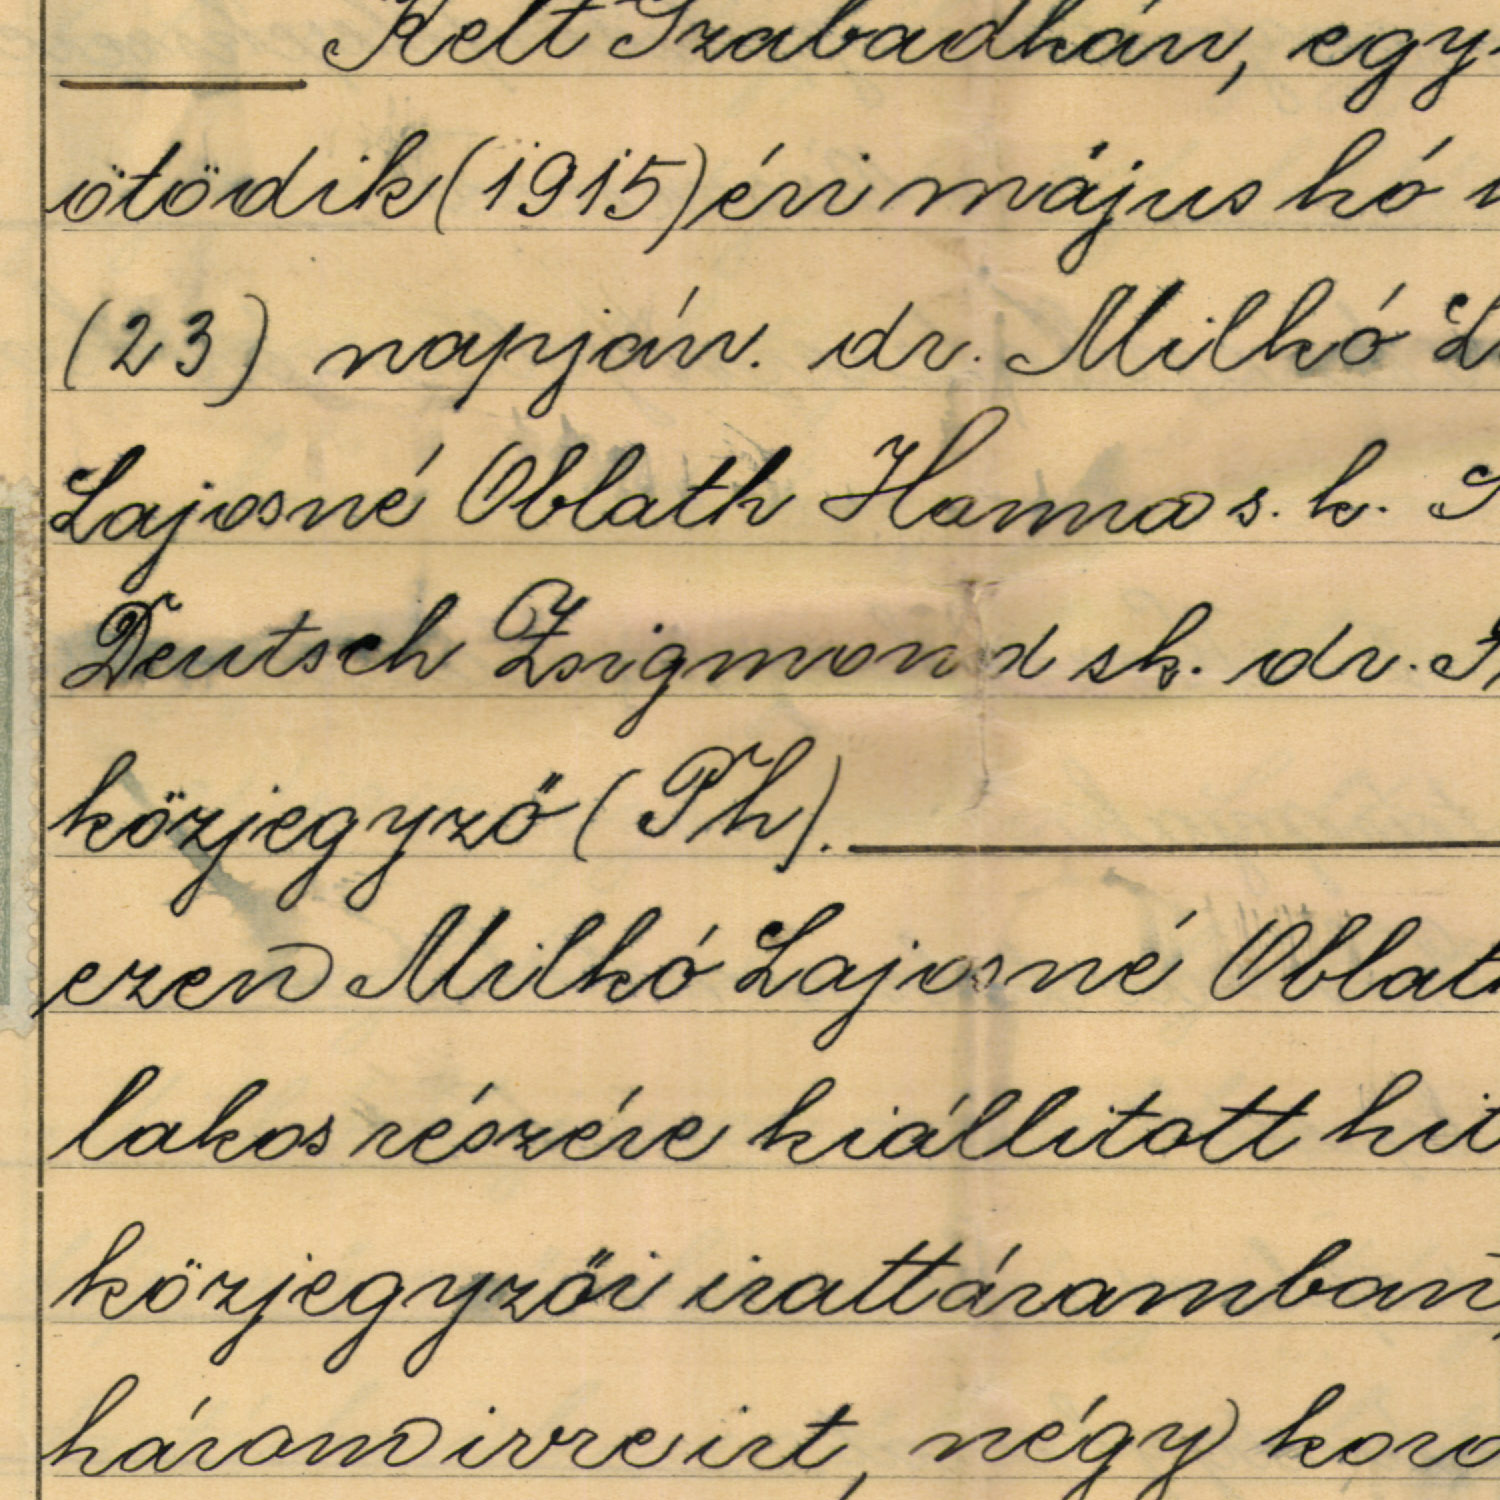 Kelt Szabadkán, egy-
ötödik (1915) évi május hó
(23) napján. dr. Milkó
Lajosné Oblath Hanna s. k.
Deutsch Zsigmond sk. dr.
közjegyző (Ph).
ezen Milkó Lajosné Oblath
lakos részére kiállitott hit
közjegyzői irattáramban,
három ivre irt, négy koro